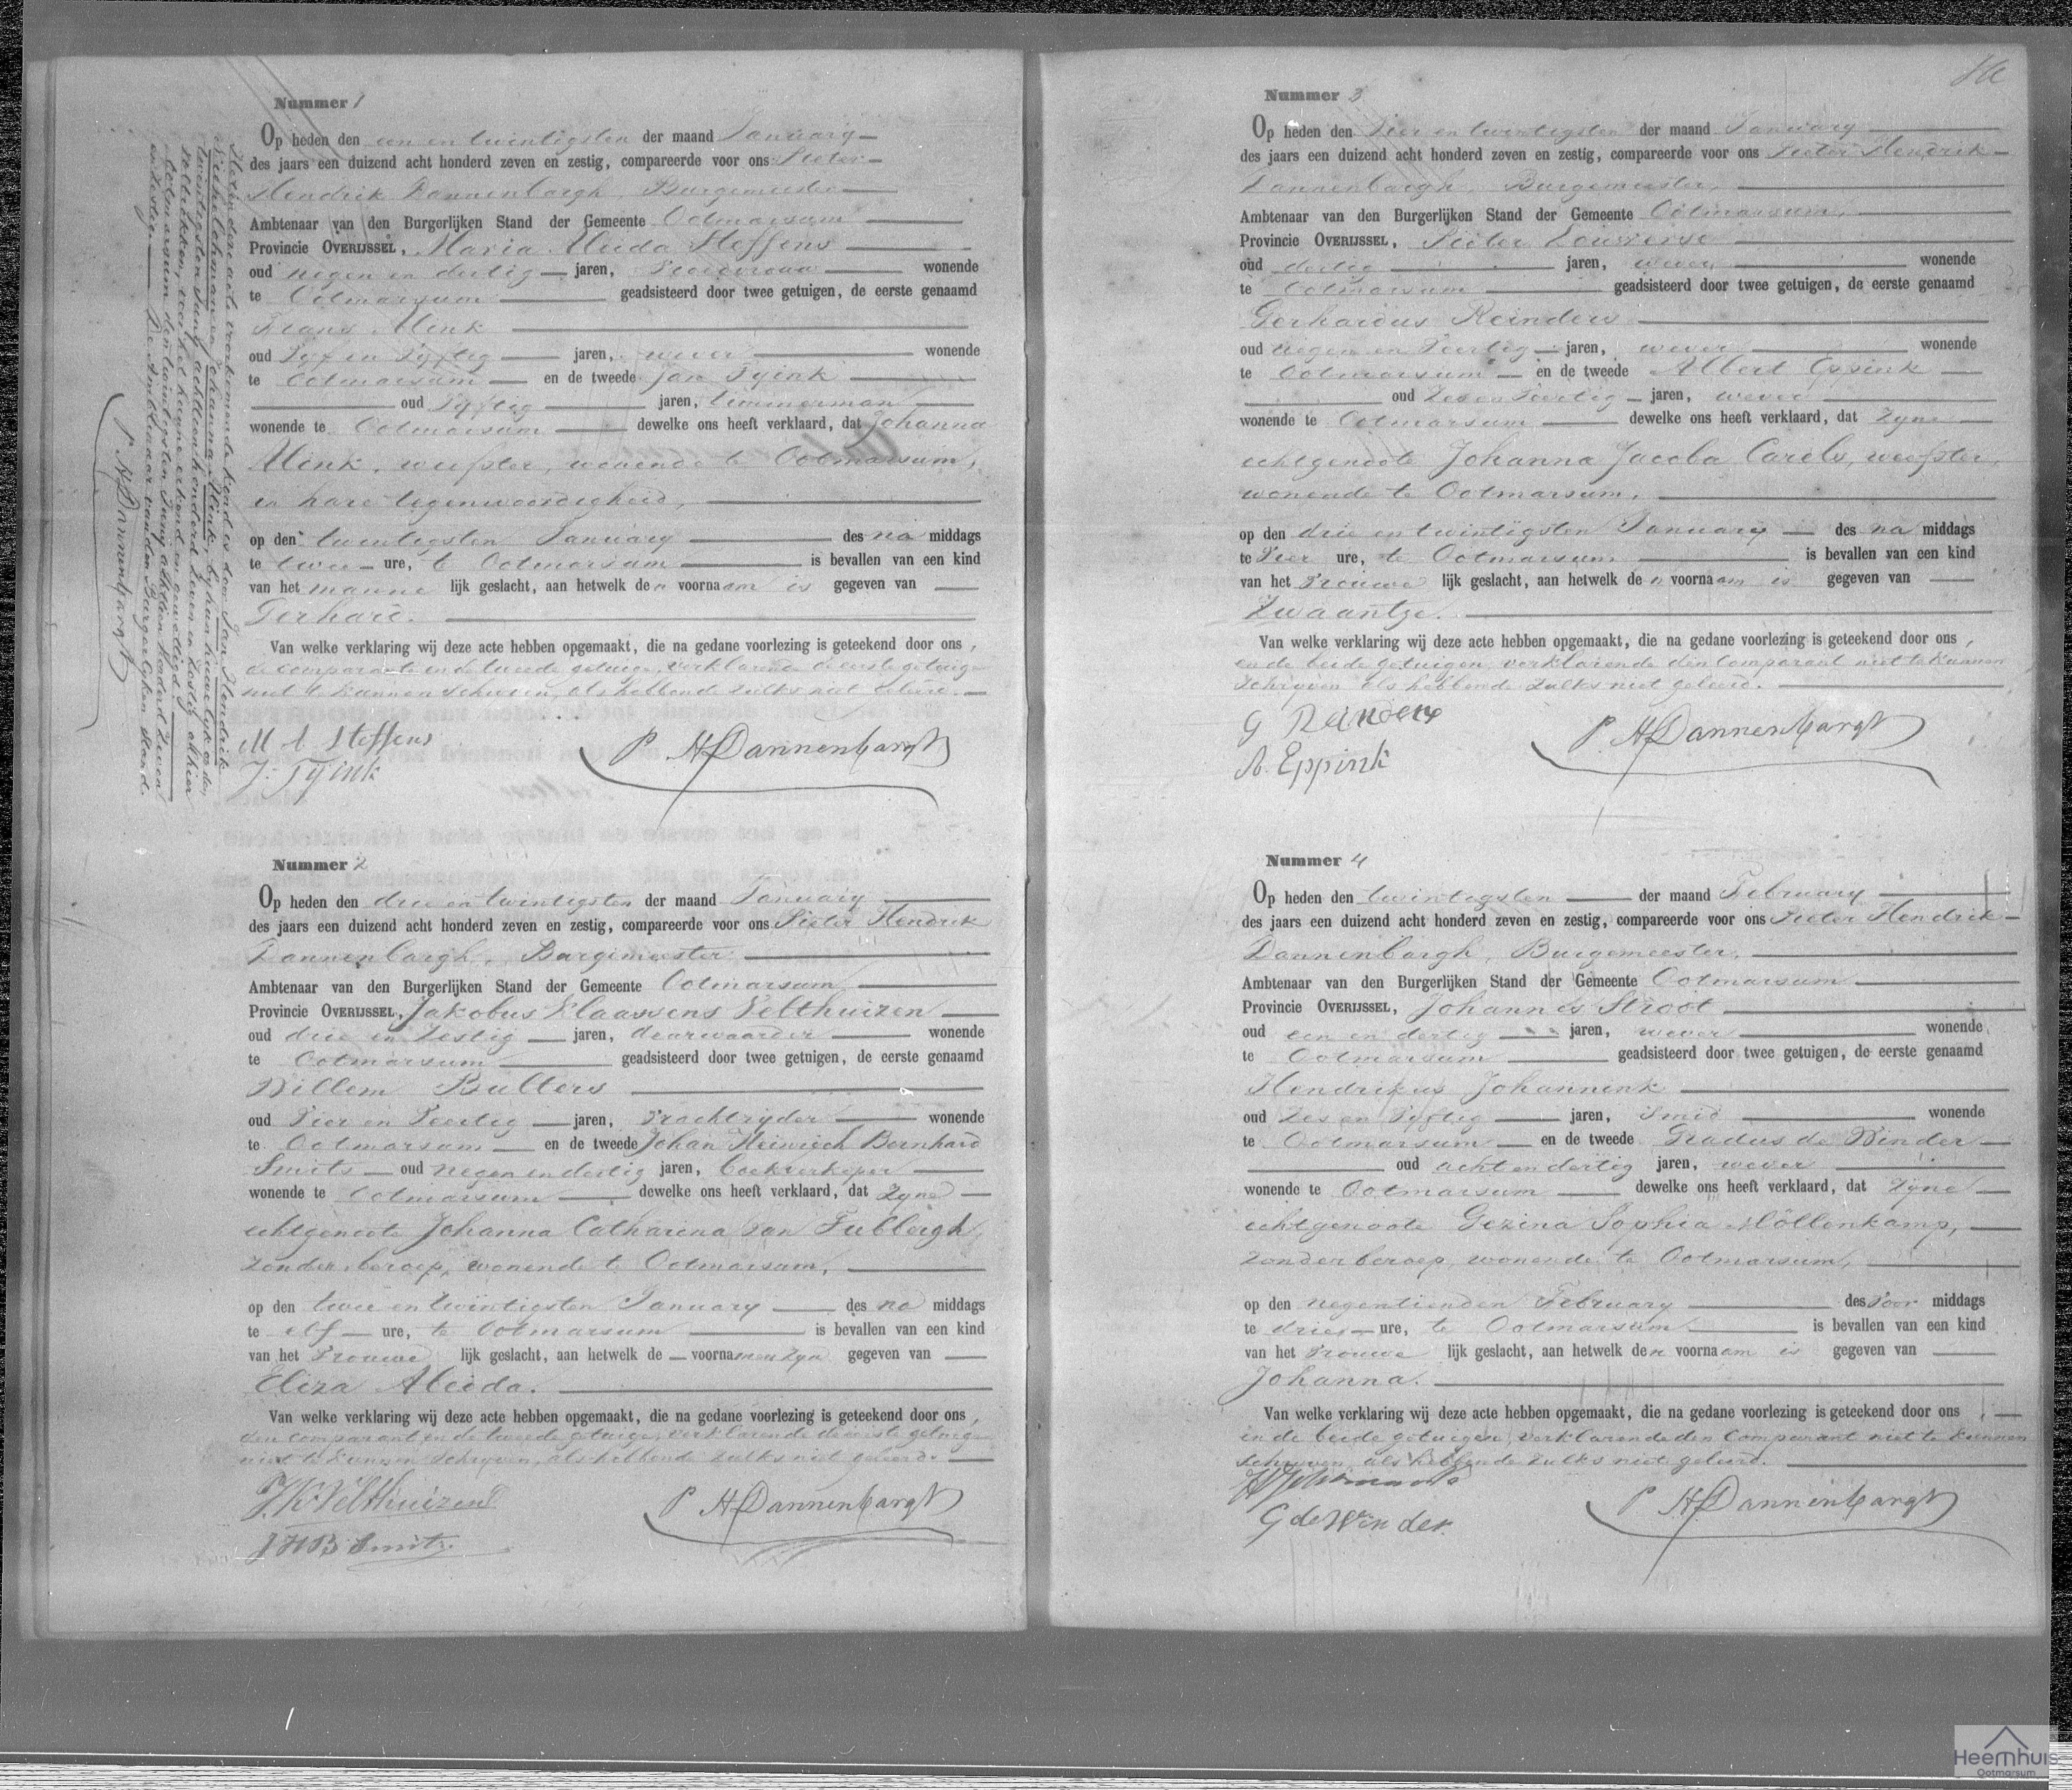 Nummer 1
Op heden den een en twintigsten der maand January
des jaars een duizend acht honderd zeven en zestig, compareerde voor ons Pieter
Hendrik Dannenbargh, Burgemeester
Ambtenaar van den Burgerlijken Stand der Gemeente Ootmarsum
Provincie OVERIJSSEL, Maria Aleida Steffens
oud negen en dertig jaren, Vroedvrouw wonende
te Ootmarsum geadsisteerd door twee getuigen, de eerste genaamd
Frans Mink
oud Vyf en Vyftig jaren, wever wonende
te Ootmarsum en de tweede Jan Tyink
oud Vyftig jaren, timmerman
wonende te Ootmarsum dewelke ons heeft verklaard, dat Johanna
Mink, weefster, wonende te Ootmarsum,
in hare tegenwoordigheid,
op den twintigsten January des na middags
te twee ure, te Ootmarsum is bevallen van een kind
van het manne lijk geslacht, aan hetwelk den voornaam is gegeven van
Gerhard.
Van welke verklaring wij deze acte hebben opgemaakt, die na gedane voorlezing is geteekend door ons,
de comparante en de tweede getuige, verklarende de eerste getuige
niet te kunnen schryven, als hebbende zulks niet geleerd.
M A Steffens
J: Tyink
P H Dannenbargh
Het in deze acte voorkomende kind is door Jan Hendrik
en Johanna Mink, by hun huwelyk op den
achttienhonderd zeven en zestig alhier
voltrokken, voor het hunne erkend en gewettigd.
Ootmarsum den twintigsten Juny achttien honderd zeven
en zestig. De Ambtenaar van den Burgerlyken Stand.
P H Dannenbargh
Nummer 2
Op heden den drie en twintigsten der maand January
des jaars een duizend acht honderd zeven en zestig, compareerde voor ons Pieter Hendrik
Dannenbargh, Burgemeester
Ambtenaar van den Burgerlijken Stand der Gemeente Ootmarsum,
Provincie OVERIJSSEL, Jakobus Klaassens Velthuizen
oud drie en zestig jaren, deurwaarder wonende
te Ootmarsum geadsisteerd door twee getuigen, de eerste genaamd
Willem Bulters
oud Vier en Veertig jaren, Vrachtryder wonende
te Ootmarsum en de tweede Johan Heinrich Bernhard
Smits oud negen en dertig jaren, boekverkoper
wonende te Ootmarsum dewelke ons heeft verklaard, dat zyne
echtgenoote Johanna Catharina van Tubbergh,
zonder beroep, wonende te Ootmarsum,
op den twee en twintigsten January des na middags
te elf ure, te Ootmarsum is bevallen van een kind
van het Vrouwe lijk geslacht, aan hetwelk de voornamen zyn gegeven van
Eliza Aleida.
Van welke verklaring wij deze acte hebben opgemaakt, die na gedane voorlezing is geteekend door ons,
den comparant en de tweede getuige, verklarende de eerste getuige
niet te kunnen schryven, als hebbende zulks niet geleerd.
J. K. Velthuizen
J H B Smits.
P H Dannenbargh
Nummer 3
Op heden den Vier en twintigsten der maand January
des jaars een duizend acht honderd zeven en zestig, compareerde voor ons Pieter Hendrik
Dannenbargh, Burgemeester,
Ambtenaar van den Burgerlijken Stand der Gemeente Ootmarsum,
Provincie OVERIJSSEL, Pieter Louwerse
oud dertig jaren, wever, wonende
te Ootmarsum geadsisteerd door twee getuigen, de eerste genaamd
Gerhardus Reinders
oud negen en Veertig jaren, wever wonende
te Ootmarsum en de tweede Albert Eppink
oud Zes en Veertig jaren, wever
wonende te Ootmarsum dewelke ons heeft verklaard, dat zyne
echtgenoote Johanna Jacoba Carels, weefster,
wonende te Ootmarsum,
op den drie en twintigsten January des na middags
te Vier ure, te Ootmarsum is bevallen van een kind
van het Vrouwe lijk geslacht, aan hetwelk den voornaam is gegeven van
Zwaantje.
Van welke verklaring wij deze acte hebben opgemaakt, die na gedane voorlezing is geteekend door ons,
en de beide getuigen, verklarende den Comparant niet te kunnen
schryven als hebbende zulks niet geleerd.
G Reinders
A. Eppink
P H Dannenbargh
Nummer 4
Op heden den twintigsten der maand February
des jaars een duizend acht honderd zeven en zestig, compareerde voor ons Pieter Hendrik
Dannenbargh, Burgemeester,
Ambtenaar van den Burgerlijken Stand der Gemeente Ootmarsum
Provincie OVERIJSSEL, Johannes Stroot
oud een en dertig jaren, wever wonende
te Ootmarsum geadsisteerd door twee getuigen, de eerste genaamd
Hendrikus Johannink
oud Zes en Vyftig jaren, smid wonende
te Ootmarsum en de tweede Gradus de Winder
oud acht en dertig jaren, wever
wonende te Ootmarsum dewelke ons heeft verklaard, dat zyne
echtgenoote Gezina Sophia Möllenkamp,
zonder beroep, wonende te Ootmarsum,
op den negentienden February des Voor middags
te drie ure, te Ootmarsum is bevallen van een kind
van het Vrouwe lijk geslacht, aan hetwelk den voornaam is gegeven van
Johanna.
Van welke verklaring wij deze acte hebben opgemaakt, die na gedane voorlezing is geteekend door ons,
en de beide getuigen, verklarende den Comparant niet te kunnen
schryven, als hebbende zulks niet geleerd.
G de Winder
P H Dannenbargh
Heemhuis
Ootmarsum